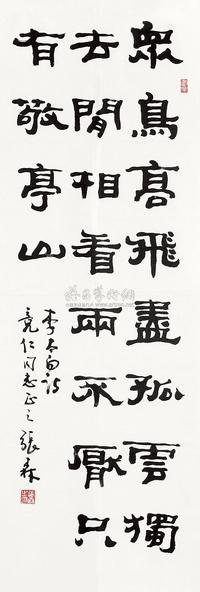 眾鳥高飛盡孤雲獨
去閒相看兩不厭只
有敬亭山
李太白詩
仁同志正之張森